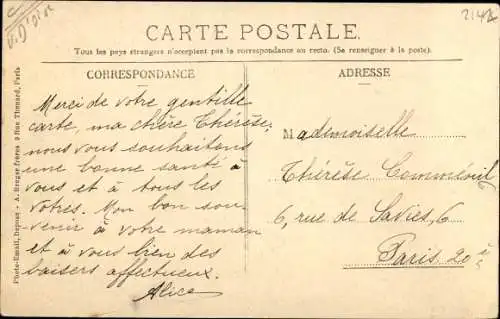 V. D'Oise
2142
CARTE POSTALE.
Tous les pays étrangers n'acceptent pas la correspondance au recto. (Se renseigner à la poste).
CORRESPONDANCE
Merci de votre gentille
carte, ma chère Thérèse,
nous vous souhaitons
une bonne santé à
vous et à tous les
votres. Mon bon sou-
venir à votre maman
et à vous bien des
baisers affectueux.
Alice
ADRESSE
Mademoiselle
Thérèse
6, rue de Savies, 6
Paris 20è
Photo-Émail, Depose - A. Berger frères 9 Rue Thénard, Paris